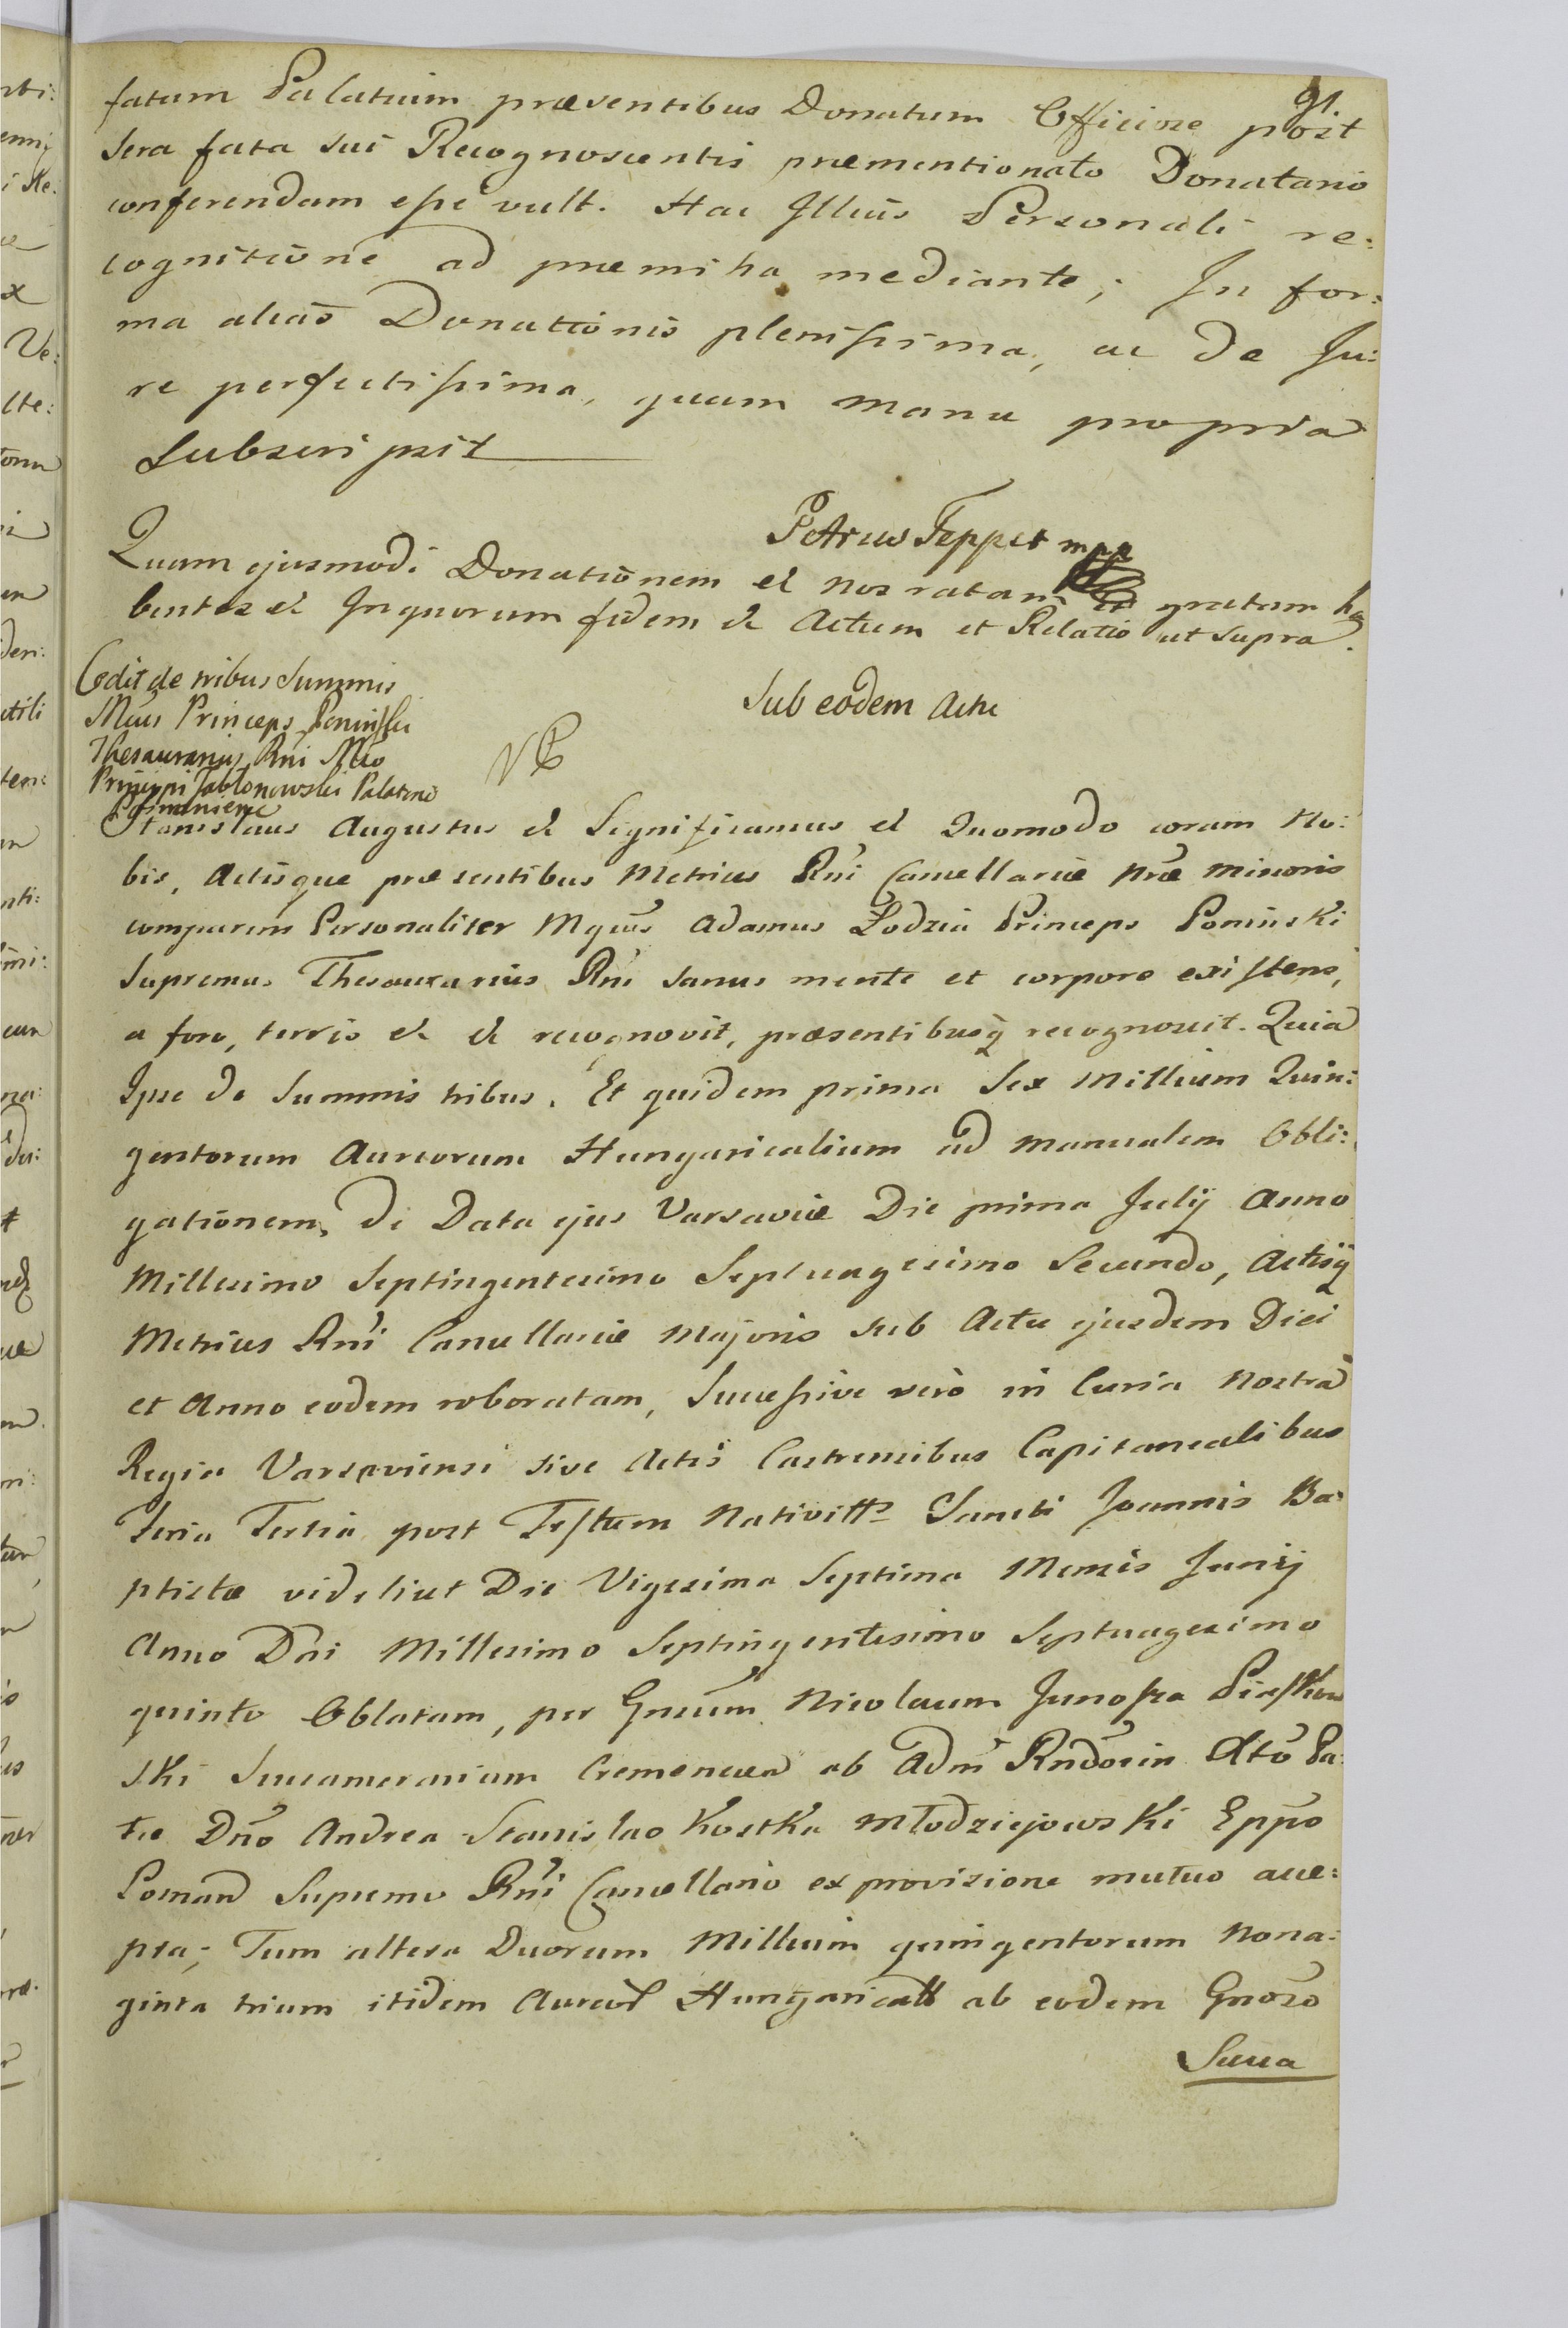 91.
fatum Palatium præsentibus Donatum Officiose post
sera fata sui Recognoscentis præmentionato Donatario
conferendam esse vult. Hac Illius Personali re:
cognitione ad præmissa mediante; In for:
ma alias Donationis plenissima, ac de Ju:
re perfectissima, quam manu propria
Subscripsit
Petrus Tepper mpp
Quam ejusmodi Donationem et nos ratam et gratam ha
bentes et Inquorum fidem et Actum et Relatio ut supra.
Sub eodem Actu
Cedit de tribus Summis
Mcus Princeps Poninski
Thesaurarius Rni Mco
Principi Jabłonowski Palatino
Posnaniens
NB
Stanislaus Augustus et Significamus et Quomodo coram No:
bis, Actisque præsentibus Metrices Rni Cancellariæ Nræ minoris
comparens Personaliter Mgcus Adamus Łodzia Princeps Poninski
Supremus Thesaurarius Rni sanus mente et corpore existens,
a foro, terris et et recognovit, præsentibusq recognoscit. Quia
Ipse de Summis tribus. Et quidem prima Sex Millium Quin:
gentorum Aureorum Hungaricalium ad manualem Obli:
gationem, di Data ejus Varsaviæ Die prima Julij Anno
Millesimo Septingentesimo Septuagesimo Secundo, Actisq
Metrices Rni Cancellariæ Majoris sub Actu ejusdem Diei
et Anno eodem roboratam, Successive verò in Curia Nostra
Regia Varsaviensi sive Actis Castrensibus Capitanealibus
Feria Tertia post Festum Nativitts Sancti Joannis Ba:
ptistæ videlicet Die Vigesima Septima Mensis Junij
Anno Dni Millesimo Septingentesimo Septuagesimo
quinto Oblatam, per Gnsum Nicolaum Junosza Piaskow
ski Succamerarium Cremenecen ab Admˢ Rndssin Xto Pa:
tre Dno Andrea Stanislao Kostka Młodziejowski Eppo
Posnan Supremo Rni Cancellario ex provisione mutuo acce:
pta; Tum altera Duorum Millium quingentorum Nona:
ginta trium itidem Aureor Hungaricall ab eodem Gnoso
Succa